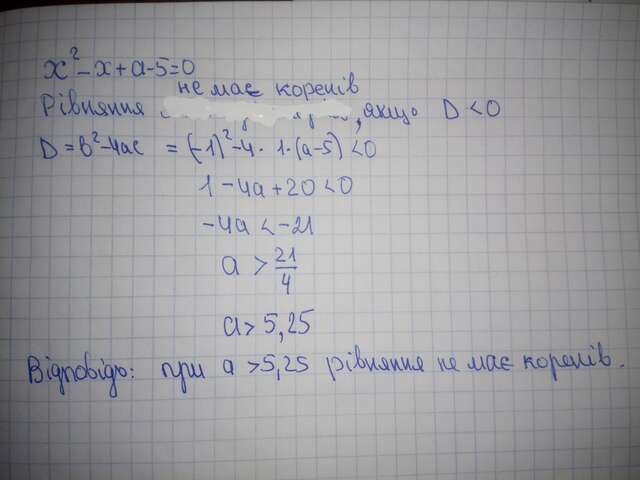 x² - x + a - 5 = 0
не має коренів
Рівняння , якщо D < 0
D = b² - 4ac = (-1)² - 4 · 1 · (a - 5) < 0
1 - 4a + 20 < 0
-4a < -21
a > 21/4
a > 5,25
Відповідь: при a > 5,25 рівняння не має коренів.